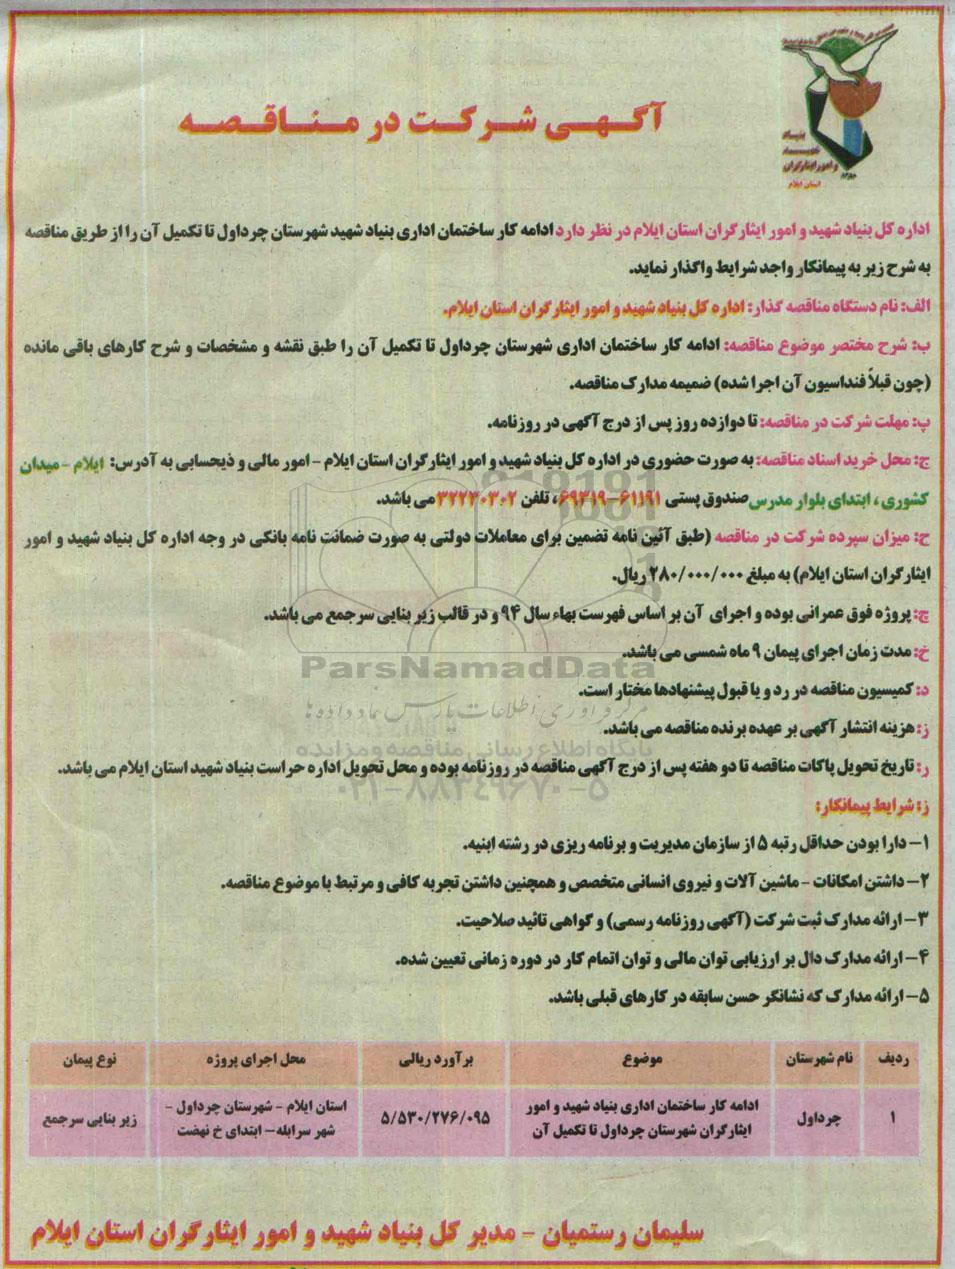 بنیاد
شهید
و امور ایثارگران
استان ایلام
آگهی شرکت در مناقصه
اداره کل بنیاد شهید و امور ایثارگران استان ایلام در نظر دارد ادامه کار ساختمان اداری بنیاد شهید شهرستان چرداول تا تکمیل آن را از طریق مناقصه
به شرح زیر به پیمانکار واجد شرایط واگذار نماید.
الف: نام دستگاه مناقصه گذار: اداره کل بنیاد شهید و امور ایثارگران استان ایلام.
ب: شرح مختصر موضوع مناقصه: ادامه کار ساختمان اداری شهرستان چرداول تا تکمیل آن را طبق نقشه و مشخصات و شرح کارهای باقی مانده
(چون قبلاً فنداسیون آن اجرا شده) ضمیمه مدارک مناقصه.
پ: مهلت شرکت در مناقصه: تا دوازده روز پس از درج آگهی در روزنامه.
ج: محل خرید اسناد مناقصه: به صورت حضوری در اداره کل بنیاد شهید و امور ایثارگران استان ایلام - امور مالی و ذیحسابی به آدرس: ایلام - میدان
کشوری ، ابتدای بلوار مدرس صندوق پستی ۶۱۱۹۱-۶۹۳۱۹، تلفن ۳۲۲۳۰۳۰۲ می باشد.
ح: میزان سپرده شرکت در مناقصه (طبق آئین نامه تضمین برای معاملات دولتی به صورت ضمانت نامه بانکی در وجه اداره کل بنیاد شهید و امور
ایثارگران استان ایلام) به مبلغ ۲۸۰/۰۰۰/۰۰۰ ریال.
چ: پروژه فوق عمرانی بوده و اجرای آن بر اساس فهرست بهاء سال ۹۴ و در قالب زیر بنایی سرجمع می باشد.
خ: مدت زمان اجرای پیمان ۹ ماه شمسی می باشد.
ParsNamadData
د: کمیسیون مناقصه در رد و یا قبول پیشنهادها مختار است.
مرکز فرآوری اطلاعات پارس نماد داده ها
ز: هزینه انتشار آگهی بر عهده برنده مناقصه می باشد.
پایگاه اطلاع رسانی مناقصه و مزایده
ر: تاریخ تحویل پاکات مناقصه تا دو هفته پس از درج آگهی مناقصه در روزنامه بوده و محل تحویل اداره حراست بنیاد شهید استان ایلام می باشد.
۰۲۱-۸۸۳۴۹۶۷۰-۵
ز: شرایط پیمانکار:
۱- دارا بودن حداقل رتبه ۵ از سازمان مدیریت و برنامه ریزی در رشته ابنیه.
۲- داشتن امکانات - ماشین آلات و نیروی انسانی متخصص و همچنین داشتن تجربه کافی و مرتبط با موضوع مناقصه.
۳- ارائه مدارک ثبت شرکت (آگهی روزنامه رسمی) و گواهی تائید صلاحیت.
۴- ارائه مدارک دال بر ارزیابی توان مالی و توان اتمام کار در دوره زمانی تعیین شده.
۵- ارائه مدارک که نشانگر حسن سابقه در کارهای قبلی باشد.
ردیف نام شهرستان موضوع برآورد ریالی محل اجرای پروژه نوع پیمان
۱ چرداول ادامه کار ساختمان اداری بنیاد شهید و امور ۵/۵۳۰/۲۷۶/۰۹۵ استان ایلام - شهرستان چرداول - زیر بنایی سرجمع
ایثارگران شهرستان چرداول تا تکمیل آن شهر سرابله- ابتدای خ نهضت
سلیمان رستمیان - مدیر کل بنیاد شهید و امور ایثارگران استان ایلام